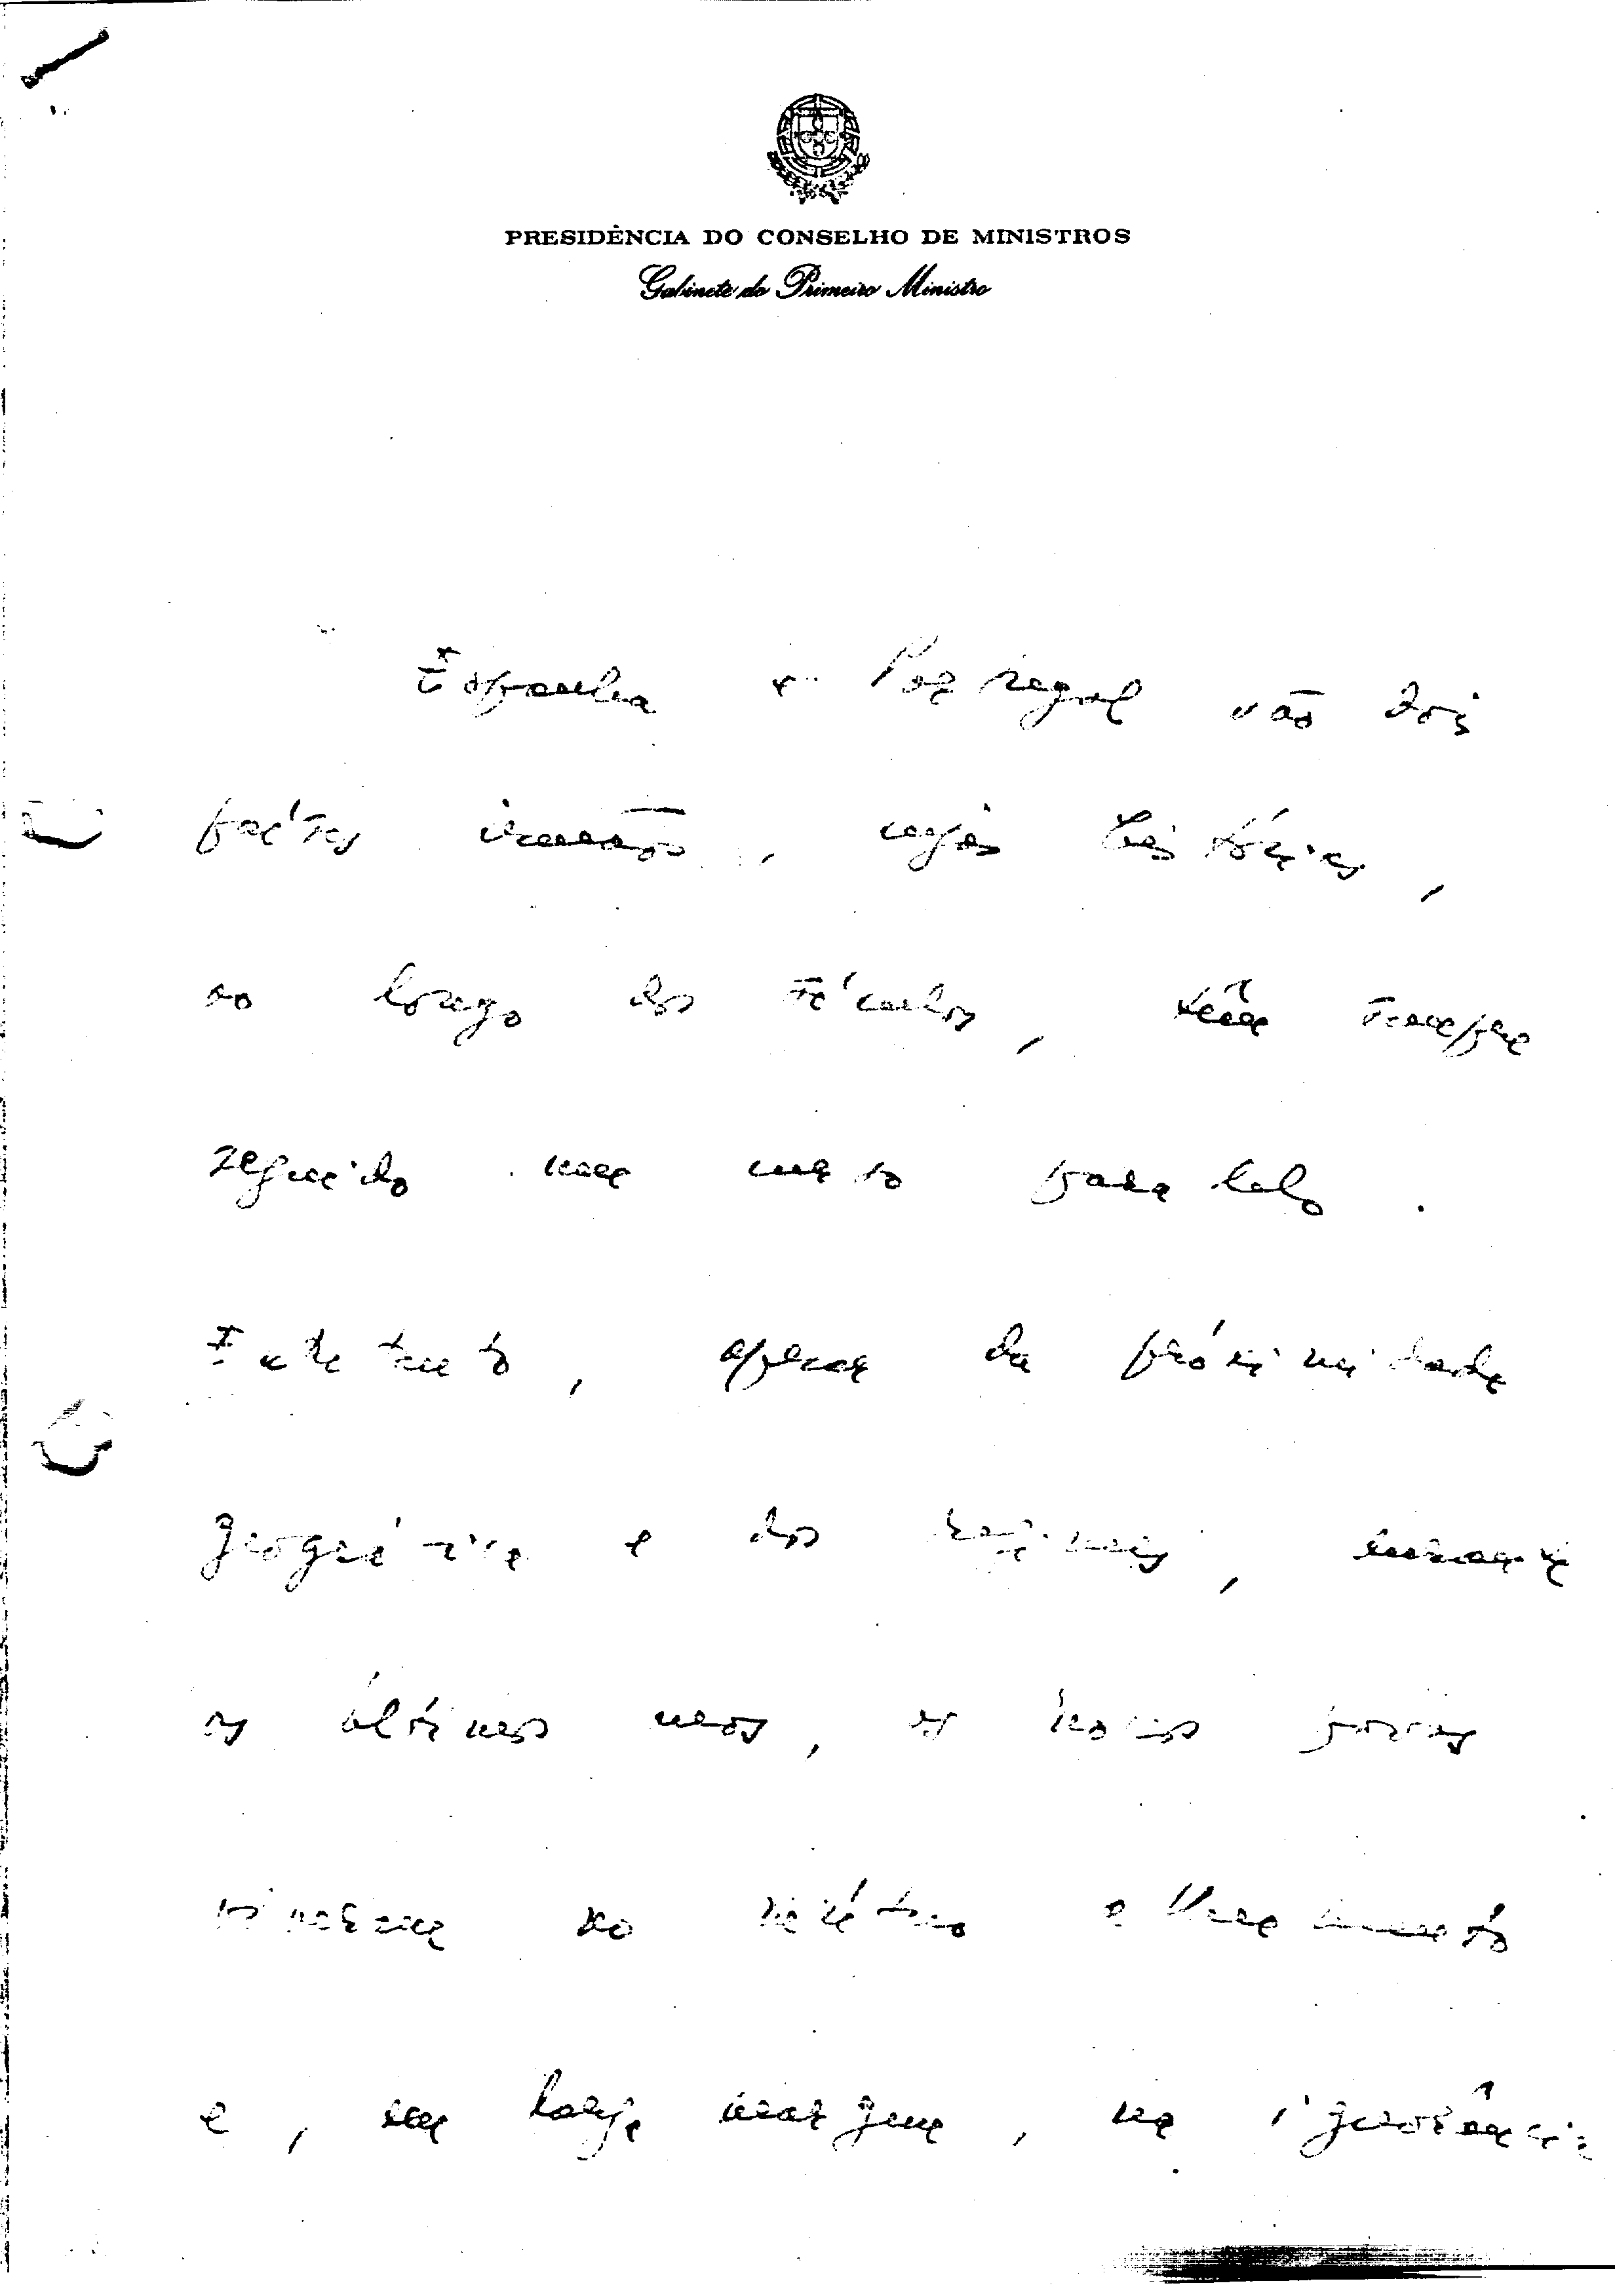 PRESIDÊNCIA DO CONSELHO DE MINISTROS
Gabinete do Primeiro Ministro
Espanha e Portugal são dois
países irmãos, cujas histórias,
ao longo dos séculos, têm sempre
seguido um curso paralelo.
Entretanto, apesar da próximidade
geográfica e dos regimes, durante
os últimos anos, os nossos povos
viveram no mútuo
e, em larga margem, na ignorância